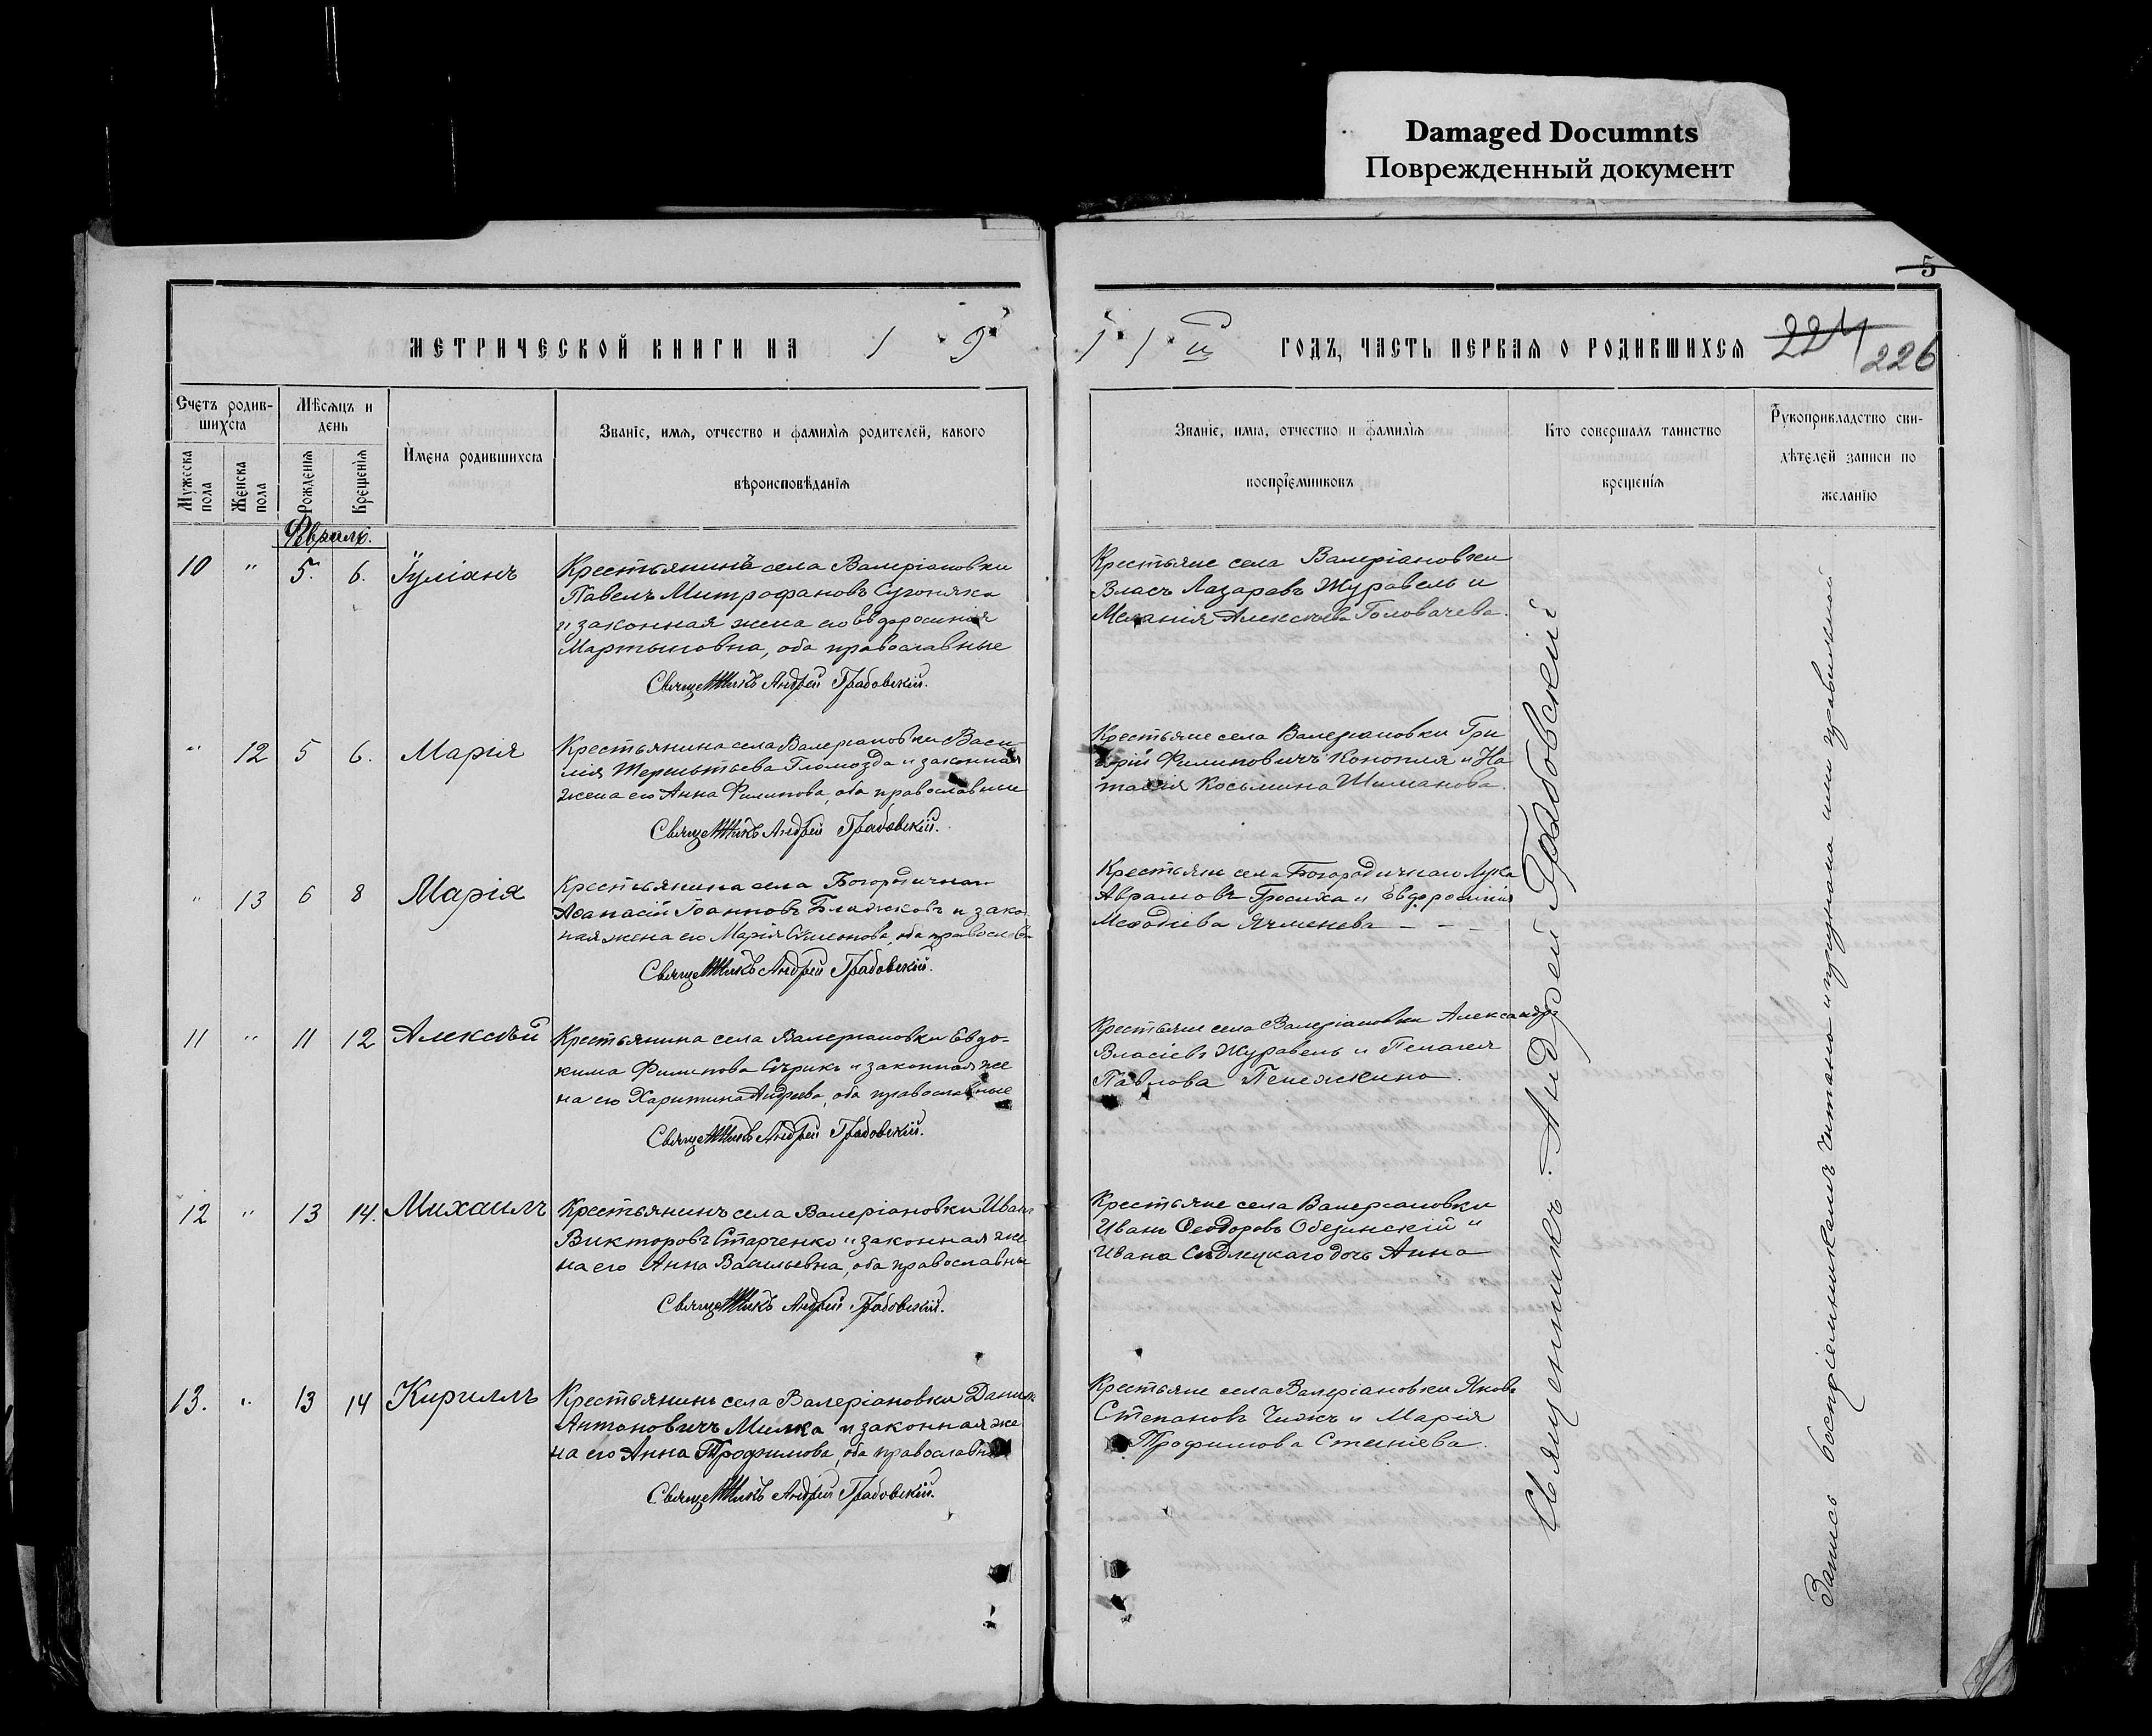 Damaged Documnts
Поврежденный документ
5
МЕТРИЧЕСКОЙ КНИГИ НА 1 9
1 1 й ГОДЪ, ЧАСТЬ ПЕРВАЯ О РОДИВШИХСЯ
224
226
Счетъ родив-
шихся
Мужеска пола
Женска пола
Мѣсяцъ и
день
Рожденія
Крещенія
Имена родившихся
Званіе, имя, отчество и фамилія родителей, какого
вѣроисповѣданія
Званіе, имя, отчество и фамилія
воспріемниковъ
Кто совершалъ таинство
крещенія
Рукоприкладство сви-
дѣтелей записи по
желанію
Февраль.
10 " 5. 6. Іуліанъ
Крестьянинъ села Валеріановки
Павелъ Митрофановъ Сугоняка
и законная жена его Евфросинія
Мартыновна, оба православные
Священникъ Андрей Грабовскій.
Крестьяне села Валеріановки
Власъ Лазаревъ Журавель и
Меланія Алексѣева Головачева.
" 12 5 6. Марія
Крестьянина села Валеріановки Васи
лія Терентьева Гломозда и законная
жена его Анна Филипова, оба православные
Священникъ Андрей Грабовскій.
Крестьяне села Валеріановки Гри
горій Филиповичъ Конопля и На
талія Косьмина Шиманова.
" 13 6 8 Марія
Крестьянина села Богородичнаго
Аѳанасій Іоанновъ Блажковъ и закон
ная жена его Марія Симонова, оба православ
Священникъ Андрей Грабовскій.
Крестьяне села Богородичнаго Лука
Аврамовъ Гросиха и Евфросинія
Меѳодіева Ячменева - - -
11 " 11 12 Алексѣй
Крестьянина села Валеріановки Евдо-
кима Филипова Сѣрикъ и законная же
на его Харитина Андреева, оба православные
Священникъ Андрей Грабовскій.
Крестьяне села Валеріановки Александръ
Власіевъ Журавель и Пелагея
Павлова
12 " 13 14. Михаилъ
Крестьянинъ села Валеріановки Иванъ
Викторовъ Старченко и законная же
на его Анна Васильевна, оба православны
Священникъ Андрей Грабовскій.
Крестьяне села Валеріановки
Иванъ Ѳеодоровъ Обединскій и
Ивана Сѣдлецкаго дочь Анна
13. " 13 14 Кириллъ
Крестьянинъ села Валеріановки Данiилъ
Антоновичъ Милка и законная же
на его Анна Трофимова, оба православные
Священникъ Андрей Грабовскій.
Крестьяне села Валеріановки Яковъ
Степановъ Чижъ и Марія
Трофимова
Священникъ: Андрей Грабовскій
Запись воспріемникамъ читана и признана ими правильной